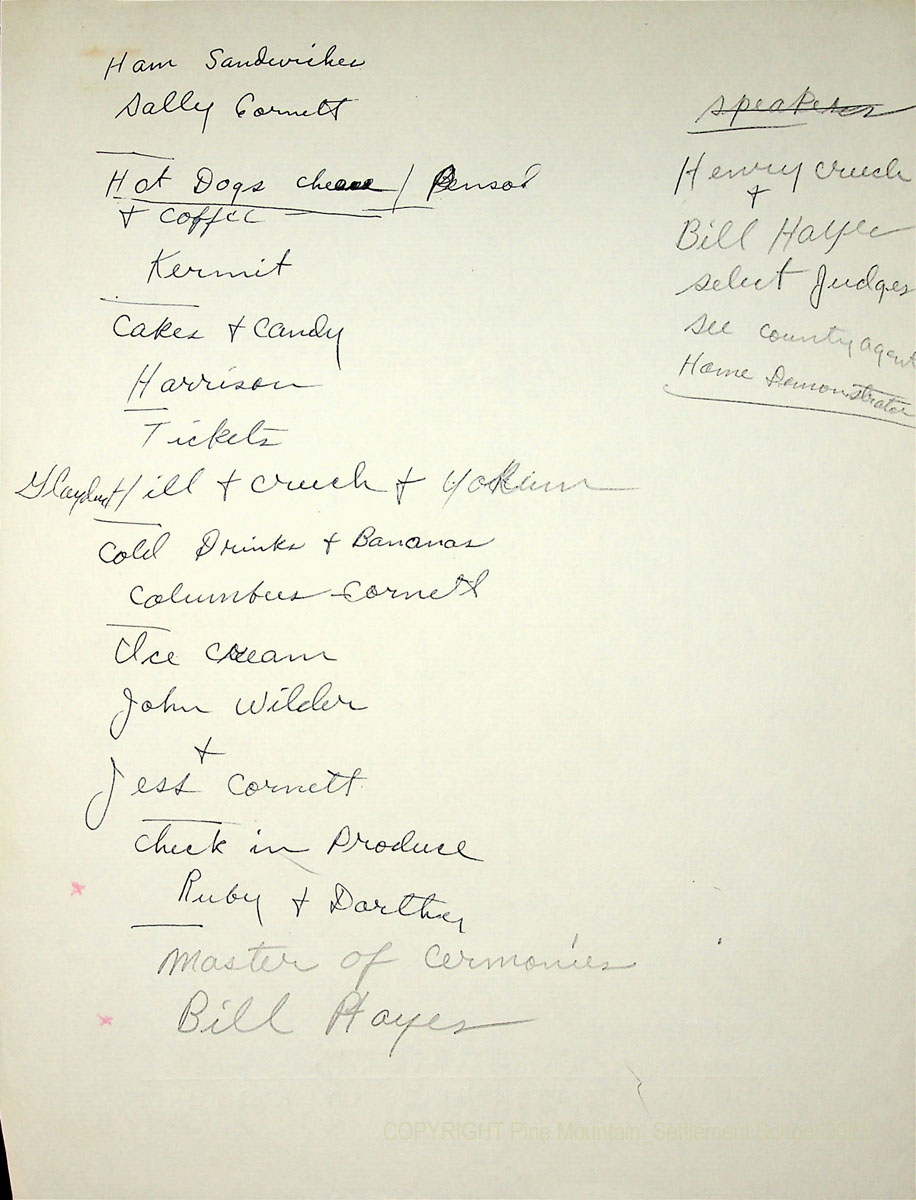 Ham Sandwiches
Sally Cornett
Hot Dogs
+ Coffee
Kermit
Cakes + Candy
Harrison
Tickets
Hill + Creech + Yokum
Cold Drinks + Bananas
Columbus Cornett
Ice Cream
John Wilder
+
Jess Cornett
Check in Produce
Ruby + Dorthey
Master of Cermonies
Bill Hayes
speakers
Henry Creech
+
Bill Hayes
select Judges
see county agent
Home Demonstrator
COPYRIGHT Pine Mountain Settlement School